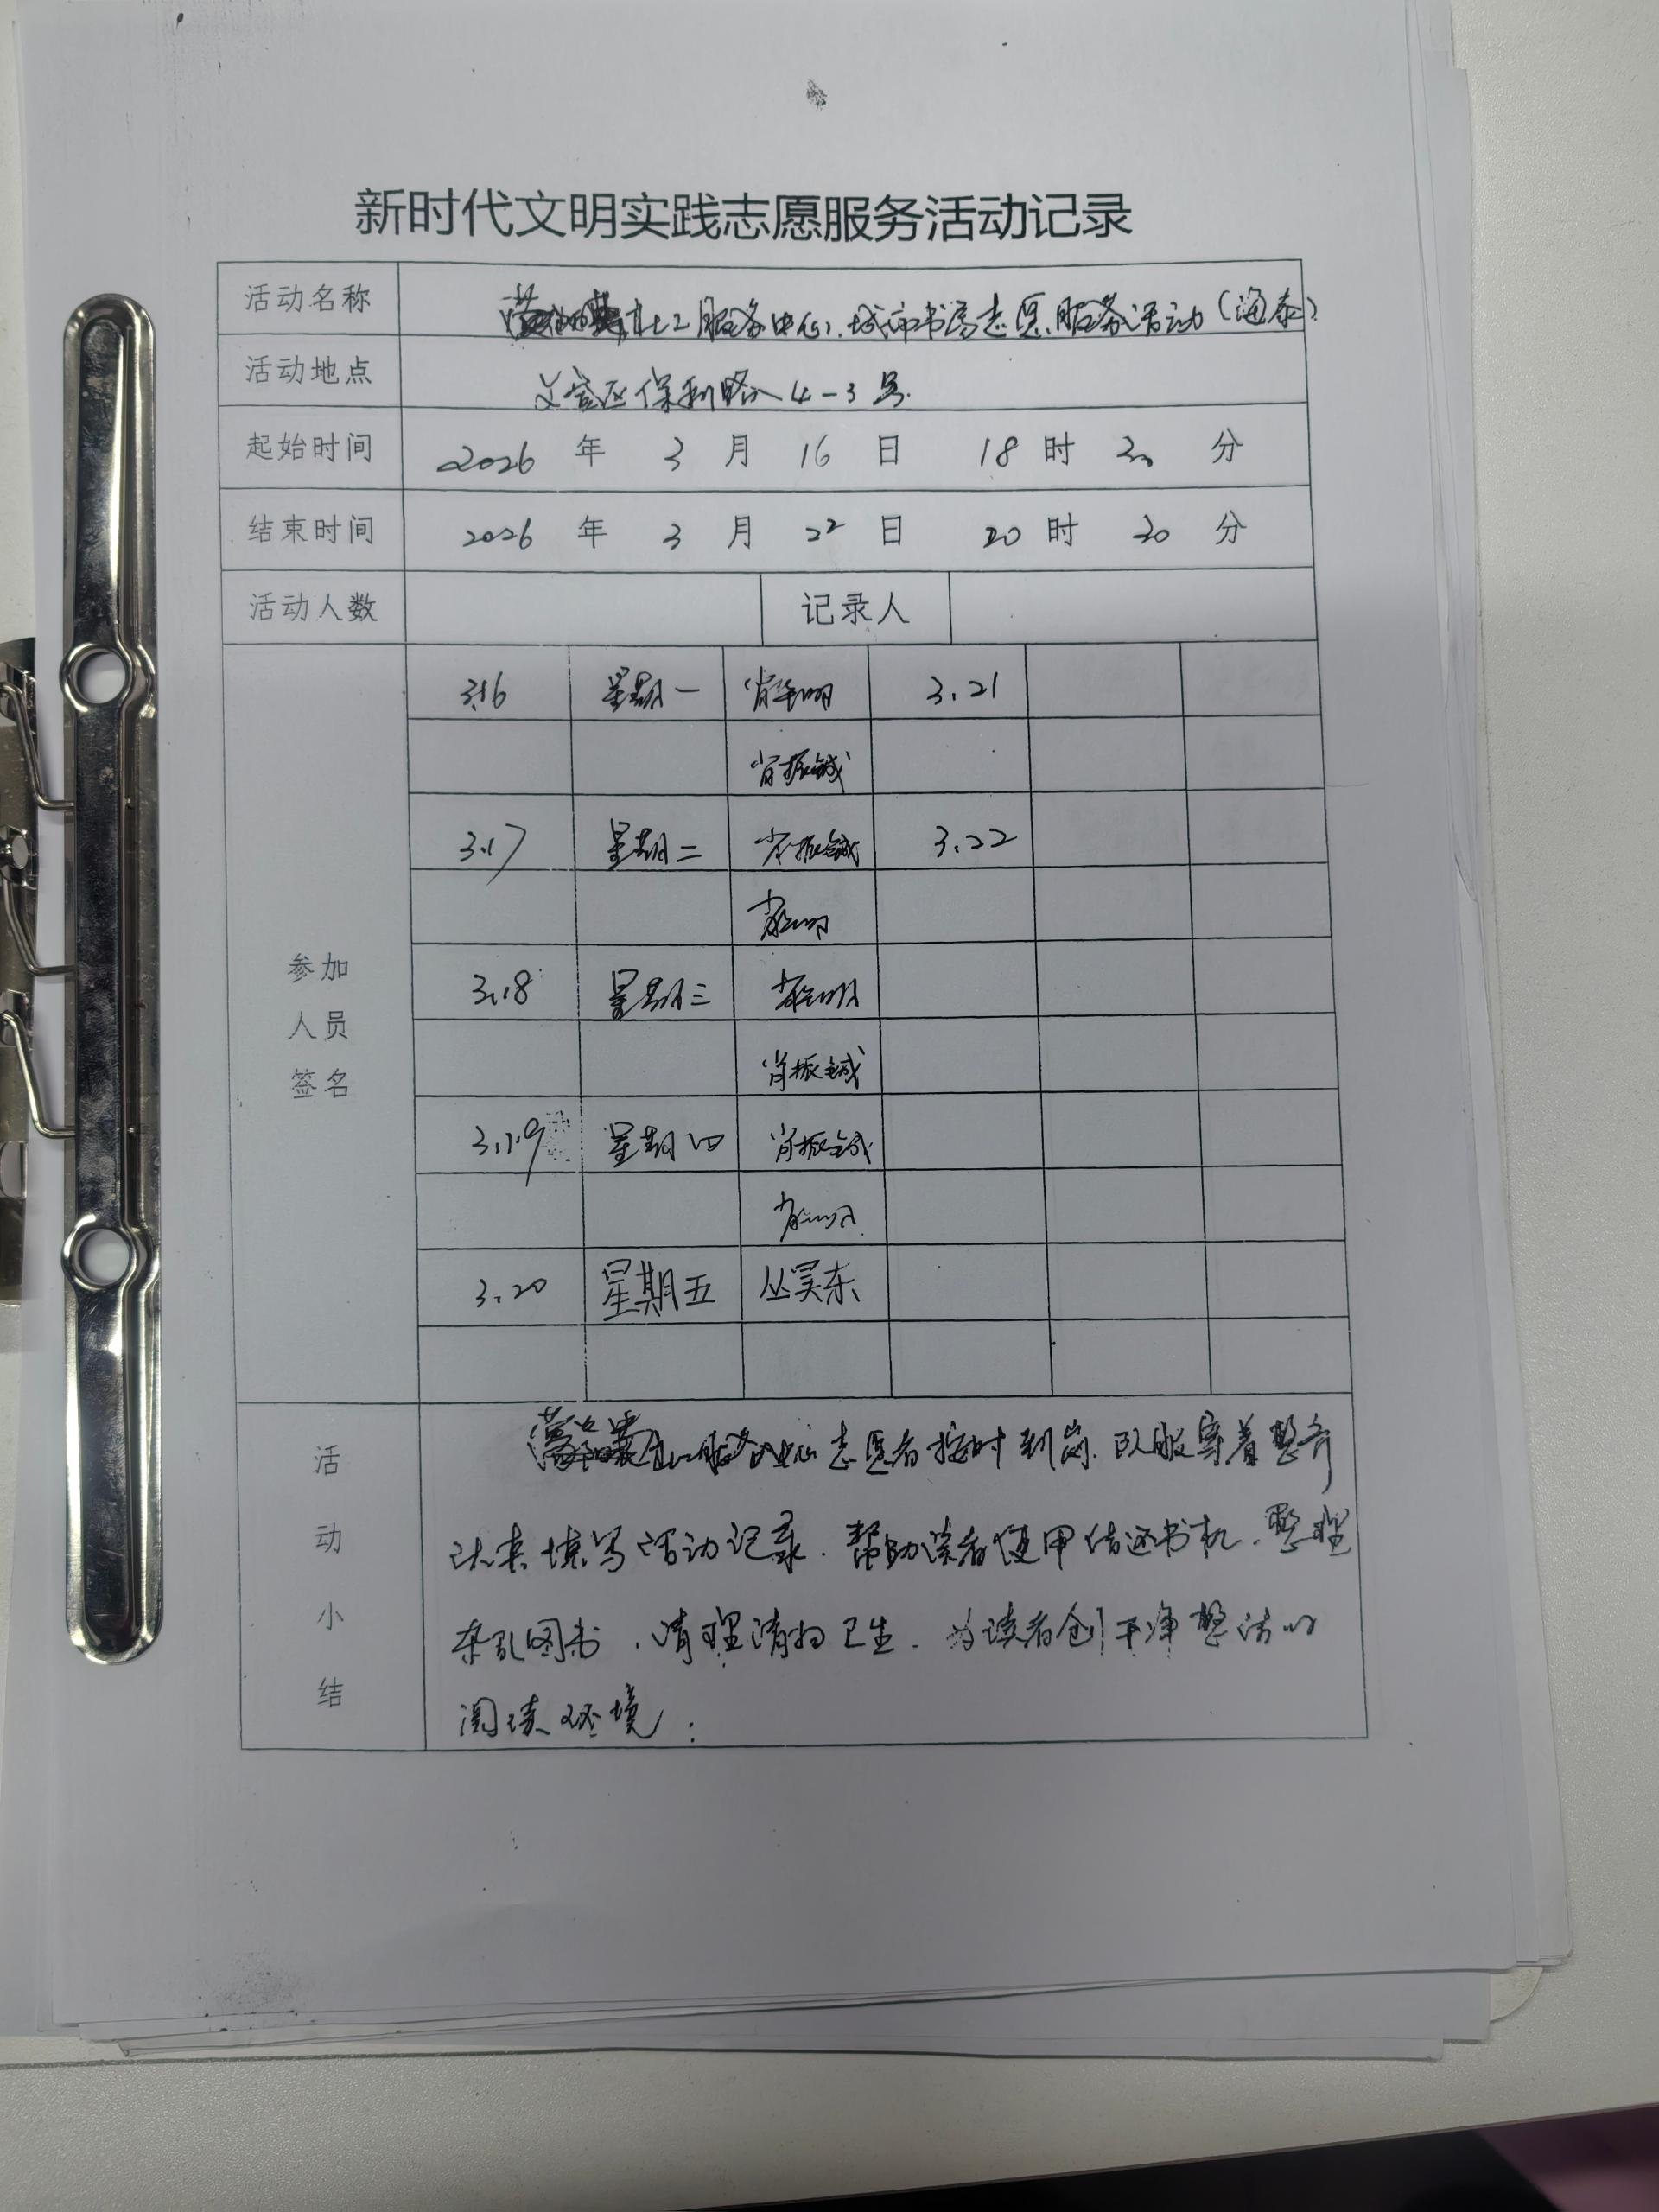 新时代文明实践志愿服务活动记录
活动名称 社工服务中心.城市书房志愿服务活动(海泰)
活动地点 4-3号.
起始时间 2026 年 3 月 16 日 18 时 30 分
结束时间 2026 年 3 月 22 日 20 时 30 分
活动人数 记录人
参加人员签名
3.16 星期一 3.21
肖振铖
3.17 星期二 肖振铖 3.22
3.18 星期三
肖振铖
3.19 星期四 肖振铖
3.20 星期五 丛昊东
活动小结
社工服务中心志愿者按时到岗.队服穿着整齐
认真填写活动记录.帮助读者使用借还书机.整理
杂乱图书.清理清扫卫生.为读者创干净整洁的
阅读环境.